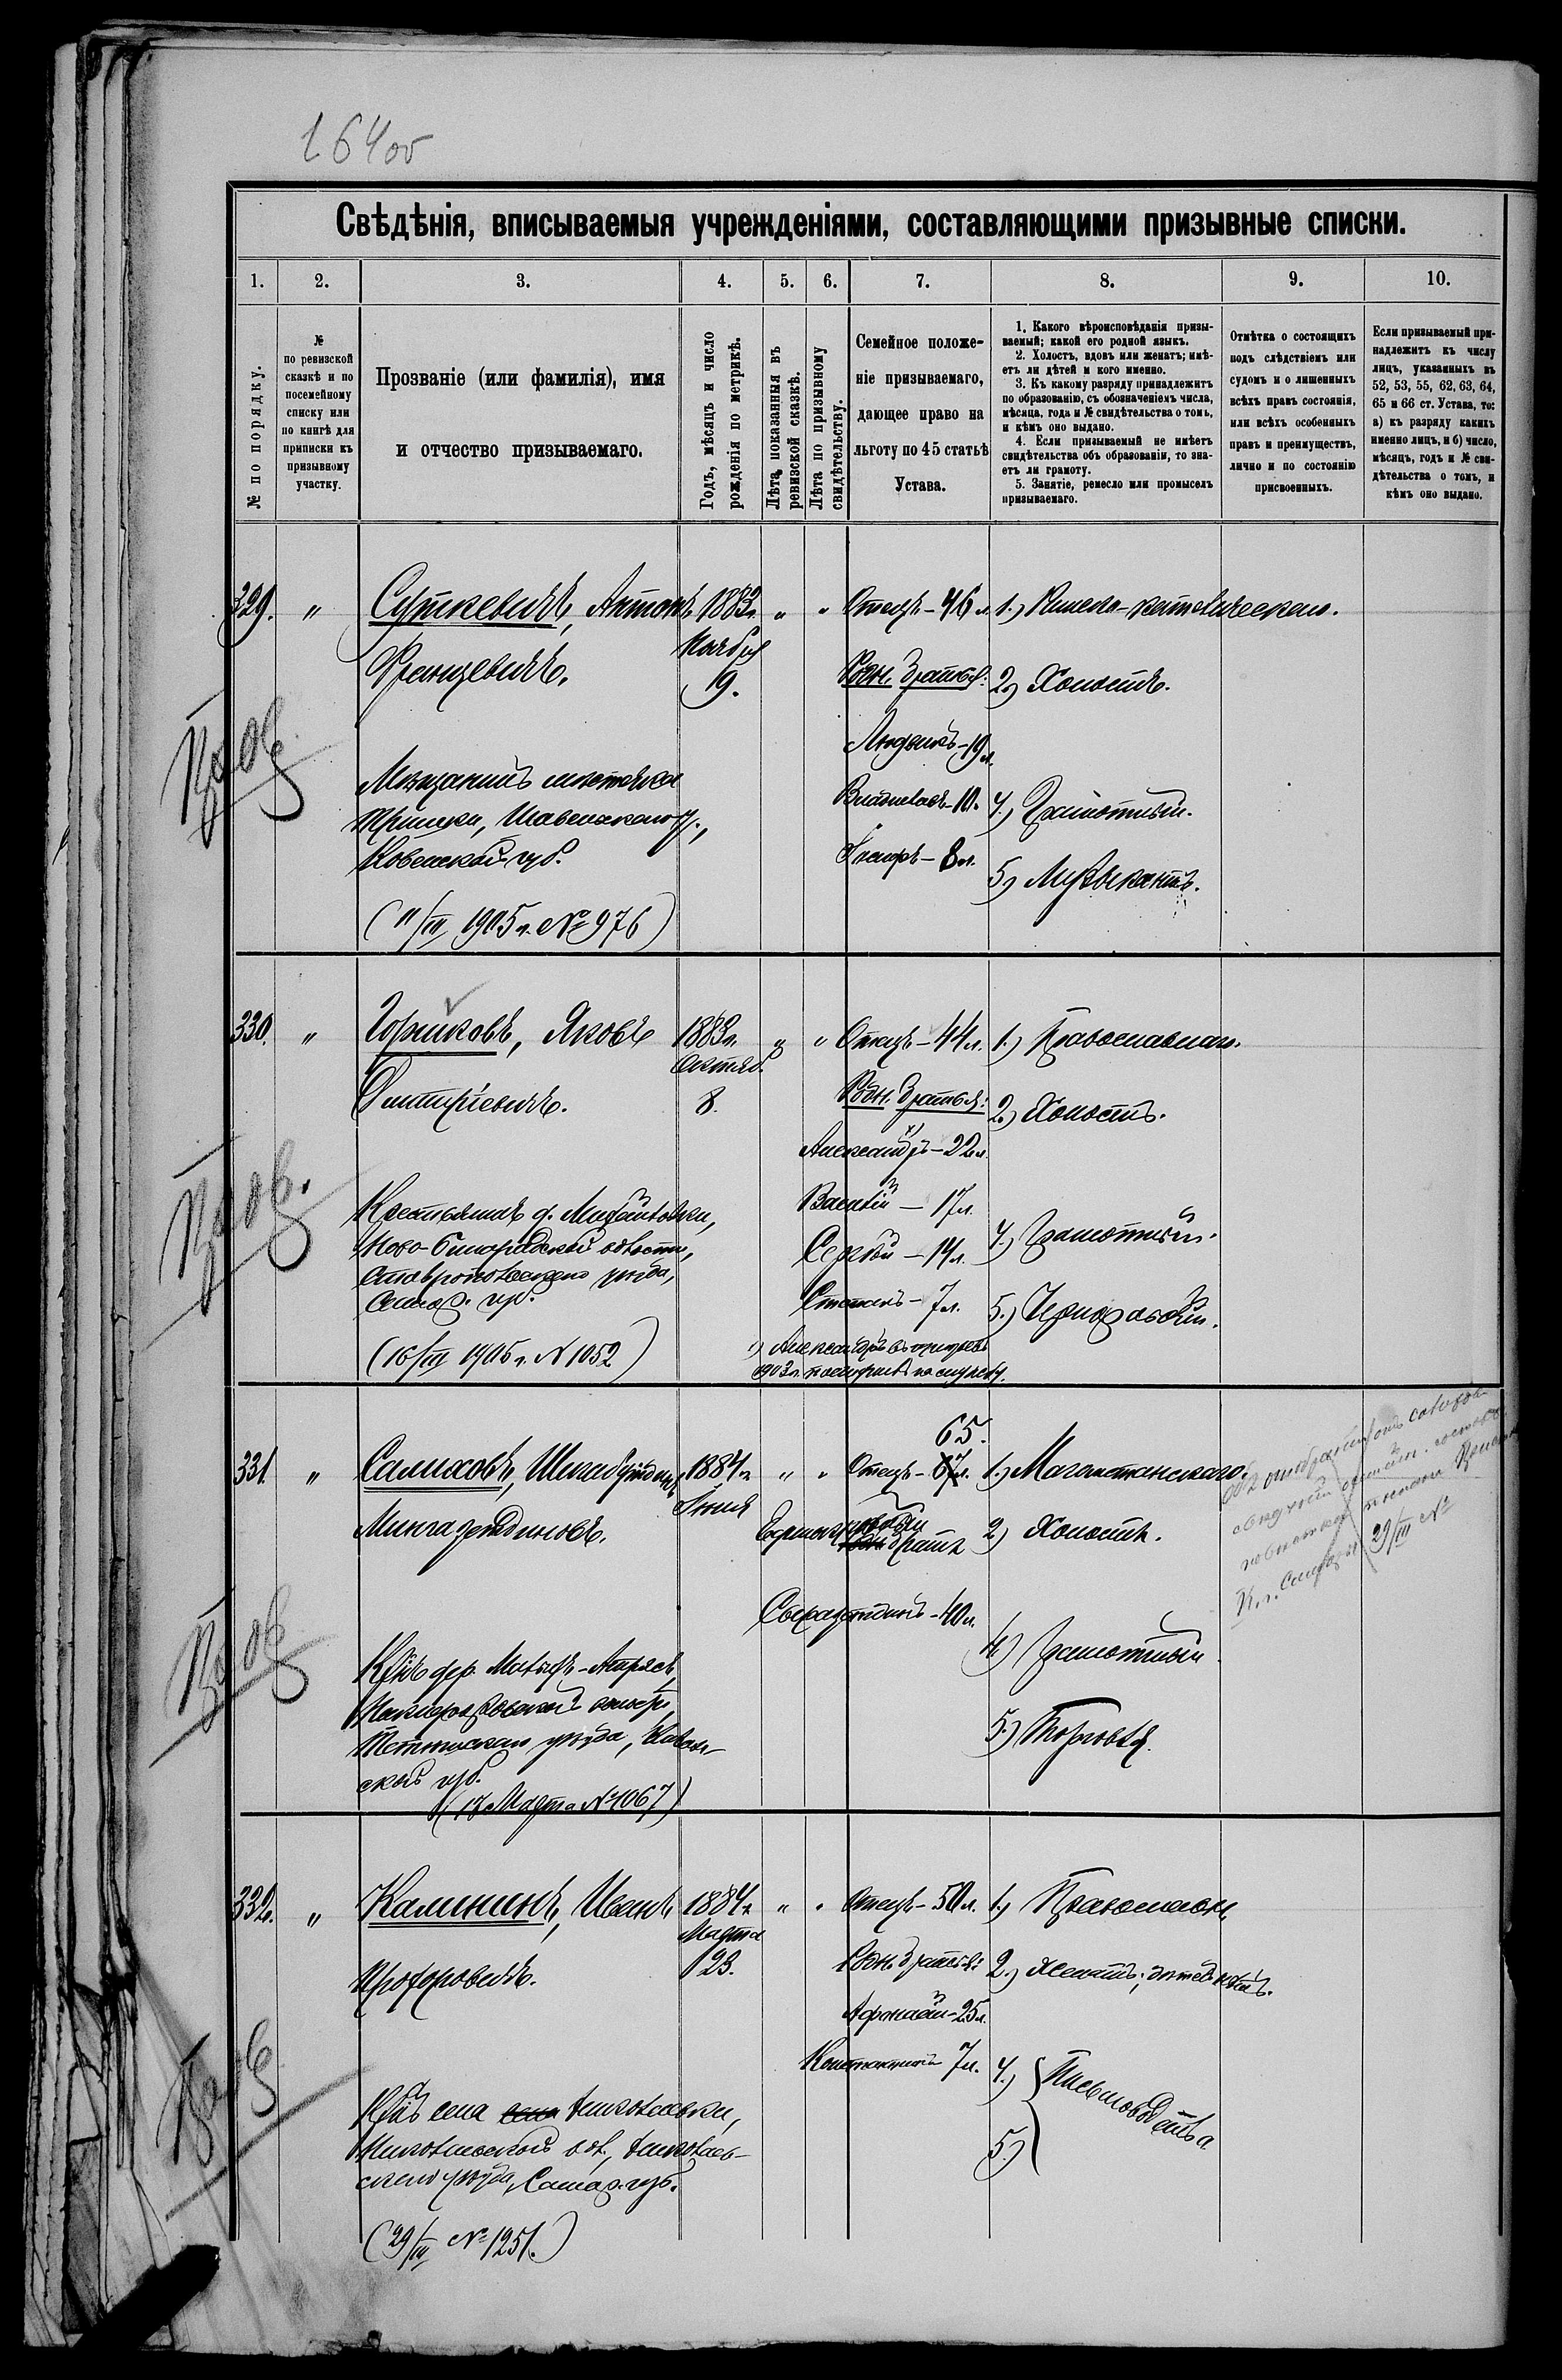 164об
Свѣдѣнія, вписываемыя учрежденіями, составляющими призывные списки.
1. 2. 3. 4. 5. 6. 7. 8. 9. 10.
№ по порядку.
№
по ревизской
сказкѣ и по
посемейному
списку или
по книгѣ для
приписки къ
призывному
участку.
Прозваніе (или фамилія), имя
и отчество призываемаго.
Годъ, мѣсяцъ и число
рожденія по метрикѣ.
Лѣта, показанныя въ
ревизской сказкѣ.
Лѣта по призывному
свидѣтельству.
Семейное положе-
ніе призываемаго,
дающее право на
льготу по 45 статьѣ
Устава.
1. Какого вѣроисповѣданія призы-
ваемый; какой его родной языкъ.
2. Холостъ, вдовъ или женатъ; имѣ-
етъ ли дѣтей и кого именно.
3. Къ какому разряду принадлежитъ
по образованію, съ обозначеніемъ числа,
мѣсяца, года и № свидѣтельства о томъ,
и кѣмъ оно выдано.
4. Если призываемый не имѣетъ
свидѣтельства объ образованіи, то зна-
етъ ли грамоту.
5. Занятіе, ремесло или промыселъ
призываемаго.
Отмѣтка о состоящихъ
подъ слѣдствіемъ или
судомъ и о лишенныхъ
всѣхъ правъ состоянія,
или всѣхъ особенныхъ
правъ и преимуществъ,
лично и по состоянію
присвоенныхъ.
Если призываемый при-
надлежитъ къ числу
лицъ, указанныхъ въ
52, 53, 55, 62, 63, 64,
65 и 66 ст. Устава, то:
а) къ разряду какихъ
именно лицъ, и б) число,
мѣсяцъ, годъ и № сви-
дѣтельства о томъ, и
кѣмъ оно выдано.
329. " Суткевичъ, Антонъ
Францевичъ.
Мѣщанинъ мѣстечка
Шавельскаго у.,
Ковенской губ.
(11/III 1905 г. № 976)
1883 г.
Ноября
19.
" "
Отецъ - 46 л.
Родн. братья:
Людвикъ - 19 л.
- 10.
- 8 л.
1.) Римско-католическаго.
2.) Холостъ.
4.) Грамотный.
5.) Музыкантъ.
330. " Горшковъ, Яковъ
Дмитріевичъ.
Крестьянинъ д. Михайловки,
Ново-Бинарадской волости,
Ставропольскаго уѣзда,
Самар. губ.
(16/III 1905 г. № 1052)
1883 г.
Октяб.
8.
" "
Отецъ - 44 л.
Родн. братья:
Александръ - 22 л.
Василій - 17 л.
Сергѣй - 14 л.
Степанъ - 7 л.
Александръ въ
1903 г. поступилъ на службу.
1.) Православнаго.
2.) Холостъ.
4.) Грамотный.
5.) Чернорабочій.
331 " Салиховъ,
Мингазетдиновъ.
Кр-нъ дер.
волости,
Тетюшскаго уѣзда, Казан-
ской губ.
(17 Марта № 1067)
1884 г.
Іюня
" "
65.
Отецъ - 67 л.
братъ
- 40 л.
1.) Магометанскаго.
2) Холостъ.
4) Грамотный
5.) Торговля.
29/III №
332. " Калининъ, Иванъ
Прохоровичъ.
Кр-нъ села села Николаевки,
Николаевской вол., Николаев-
скаго уѣзда, Самар. губ.
(29/III № 1251.)
1884 г.
Марта
23.
" "
Отецъ - 50 л.
Родн. братья:
Афанасій - 25 л.
Константинъ 7 л.
1.) Православн.
2.) Женатъ; дѣтей нѣтъ.
4.)
5.)
Письмоводство